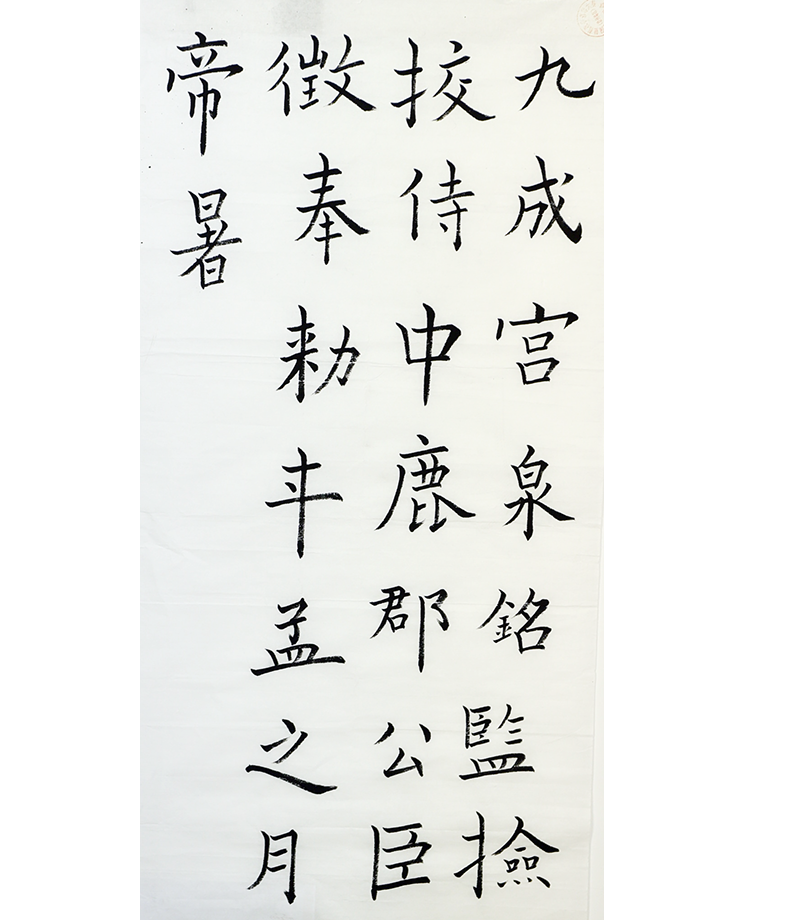 九成宮泉銘監撿
挍侍中鹿郡公臣
徵奉勑孟之月
帝暑